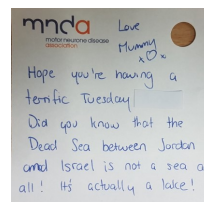 mnda
motor neurone disease
association
Love
Mummy
x ♡ x
Hope you're having a
terrific Tuesday
Did you know that the
Dead Sea between Jordan
and Israel is not a sea a
all! It's actually a lake!